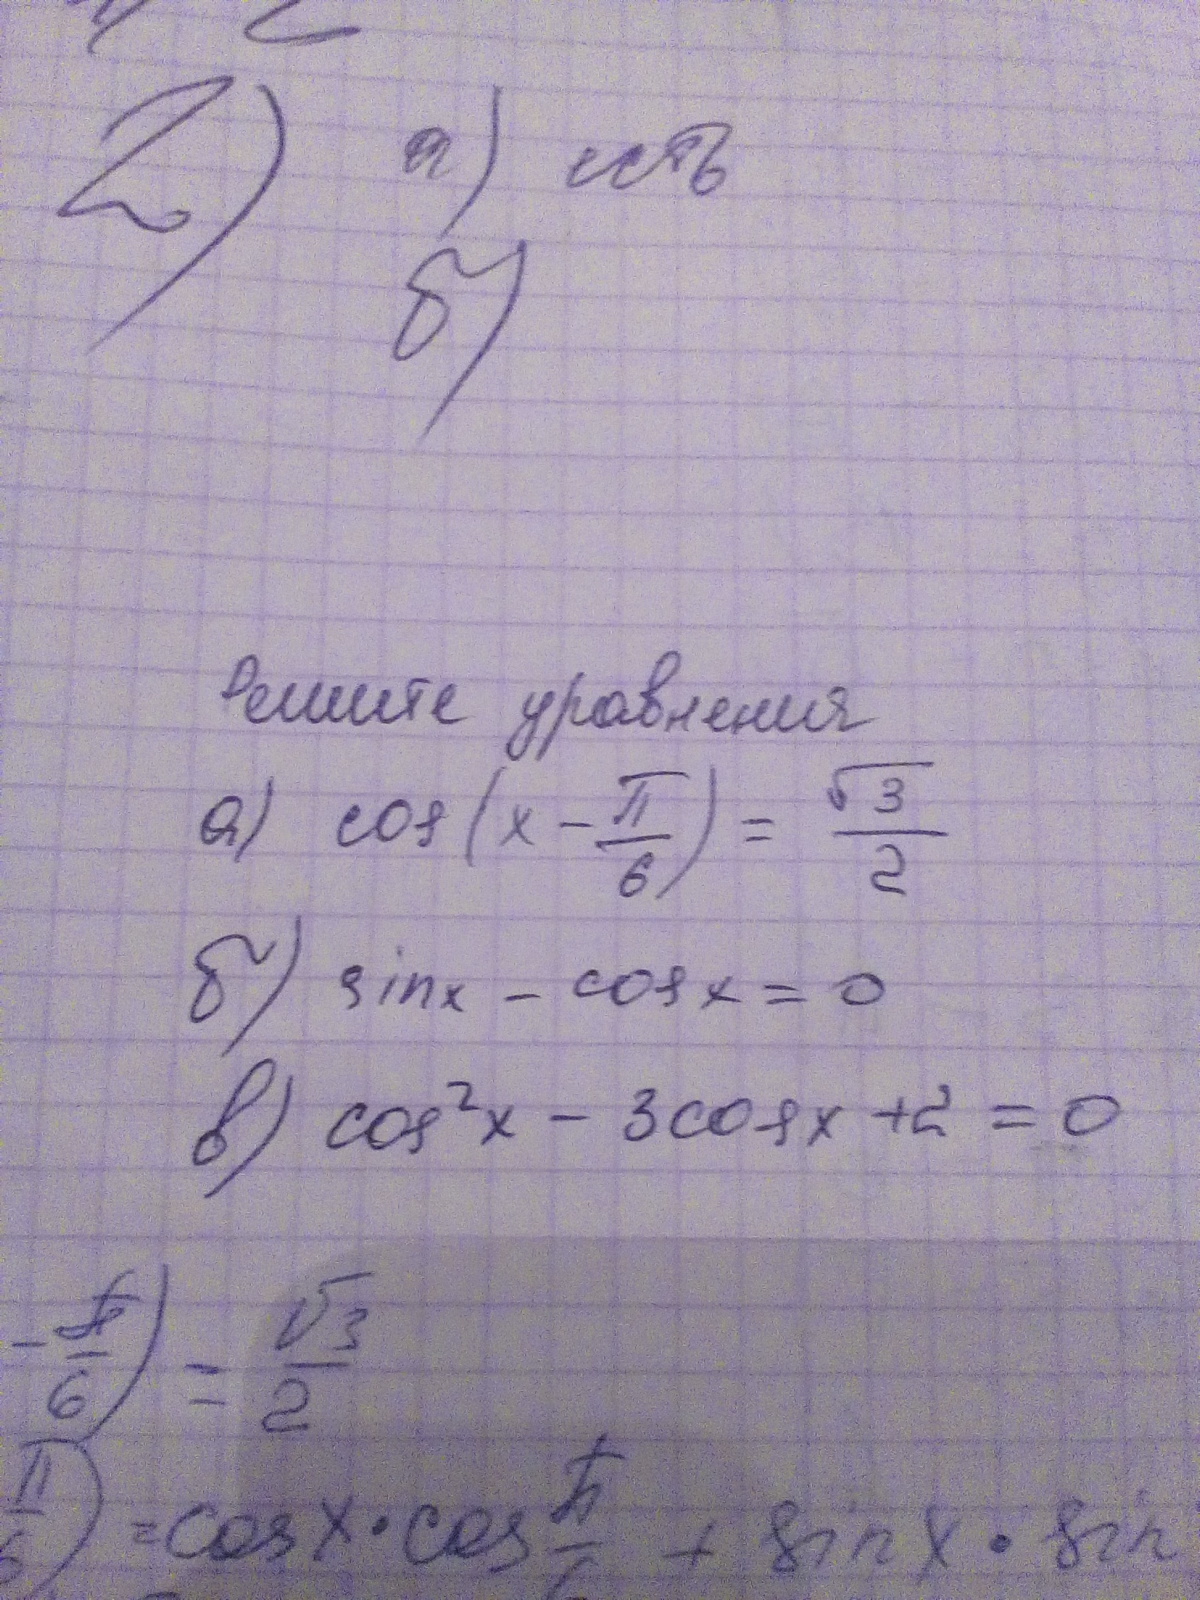 2) а) есть
б)
Решите уравнения
а) cos(x - π/6) = √3/2
б) sinx - cosx = 0
в) cos²x - 3cosx + 2 = 0
- π/6) = √3/2
π/6) = cosx · cos π/6 + sinx · sin